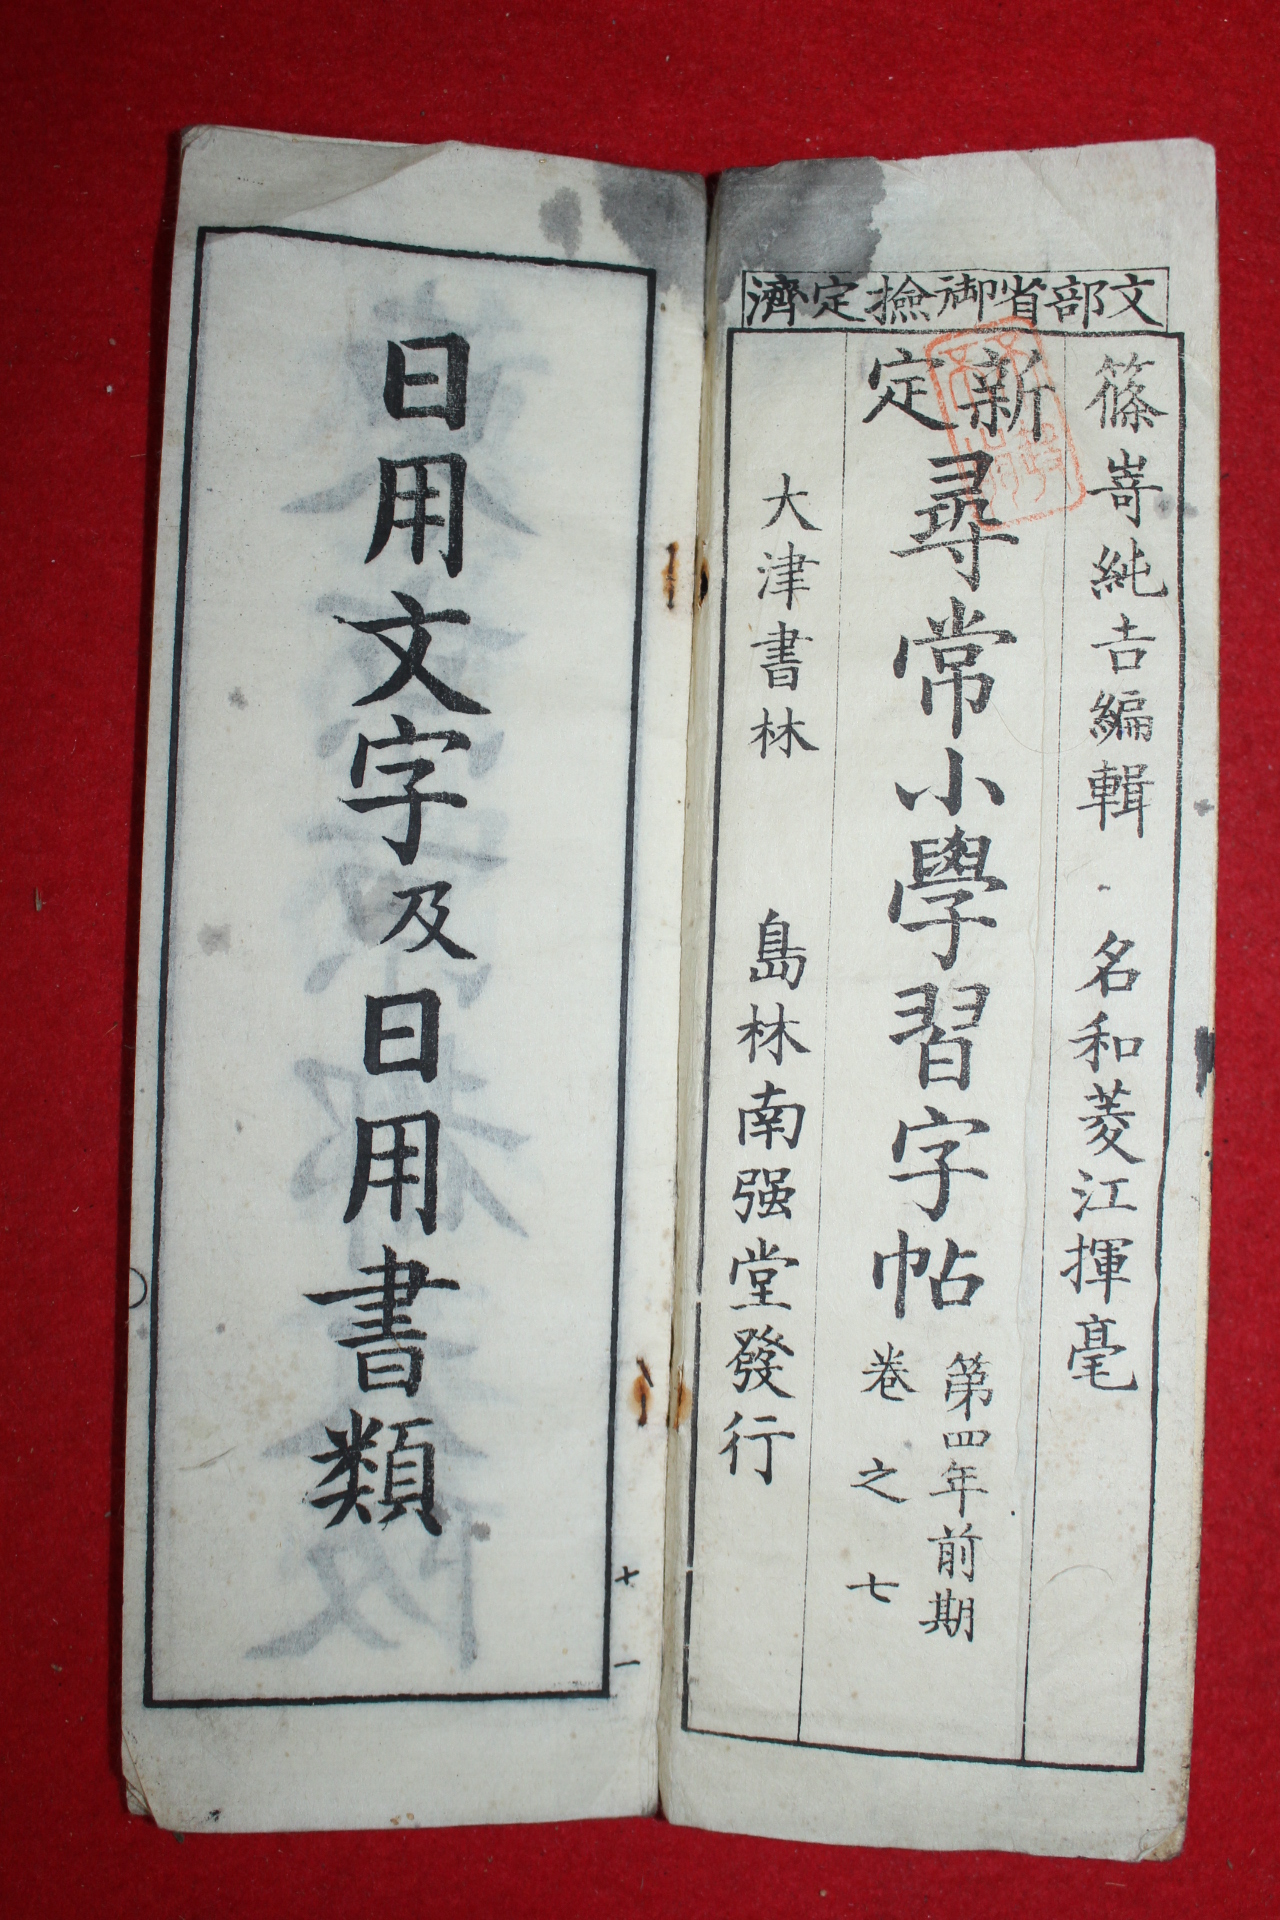 文部省御撿定濟
篠嵜純吉編輯 名和菱江揮毫
新定尋常小學習字帖 第四年前期 卷之七
大津書林 島林南强堂發行
日用文字及日用書類
七 一